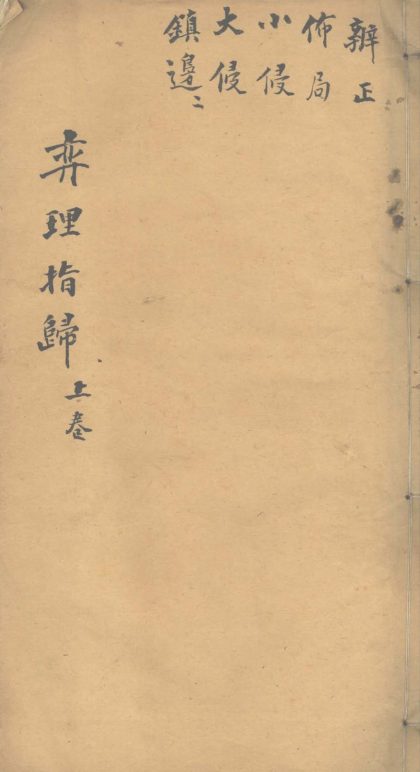 辨正
佈局
小侵
大侵
鎮邊二
弈理指歸上卷